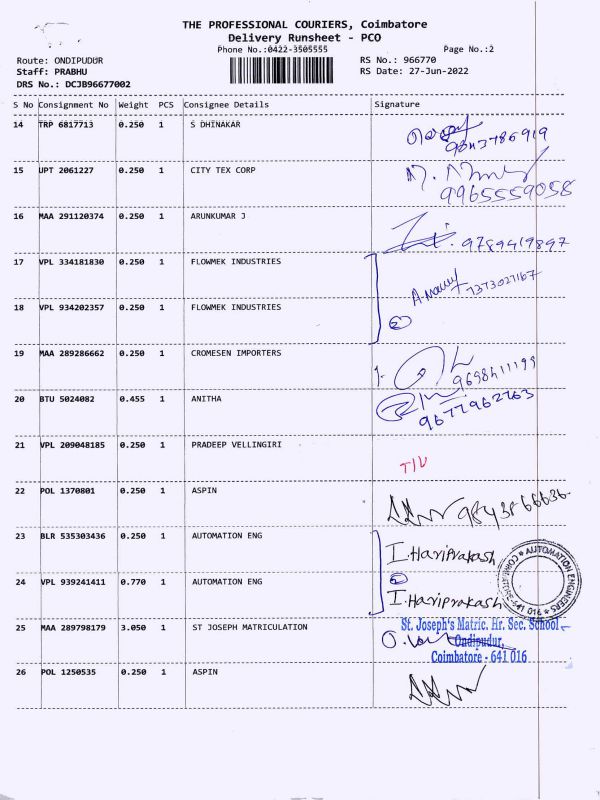 THE PROFESSIONAL COURIERS, Coimbatore
Delivery Runsheet - PCO
Phone No.:0422-3505555
Page No.:2
Route: ONDIPUDUR
RS No.: 966770
Staff: PRABHU
RS Date: 27-Jun-2022
DRS No.: DCJB96677002
S No Consignment No Weight PCS Consignee Details Signature
14 TRP 6817713 0.250 1 S DHINAKAR
9843786919
15 UPT 2061227 0.250 1 CITY TEX CORP
9965559058
16 MAA 291120374 0.250 1 ARUNKUMAR J
9789419897
17 VPL 334181830 0.250 1 FLOWMEK INDUSTRIES
7373027167
18 VPL 934202357 0.250 1 FLOWMEK INDUSTRIES
2
19 MAA 289286662 0.250 1 CROMESEN IMPORTERS
9698411199
20 BTU 5024082 0.455 1 ANITHA
9677962763
21 VPL 209048185 0.250 1 PRADEEP VELLINGIRI
22 POL 1370801 0.250 1 ASPIN
9843866636
23 BLR 535303436 0.250 1 AUTOMATION ENG
I. Hariprakash
AUTOMATION ENGINEERS
24 VPL 939241411 0.770 1 AUTOMATION ENG
2
I. Hariprakash
25 MAA 289798179 3.050 1 ST JOSEPH MATRICULATION
St. Joseph's Matric. Hr. Sec. School
Ondipudur,
Coimbatore - 641 016
26 POL 1250535 0.250 1 ASPIN